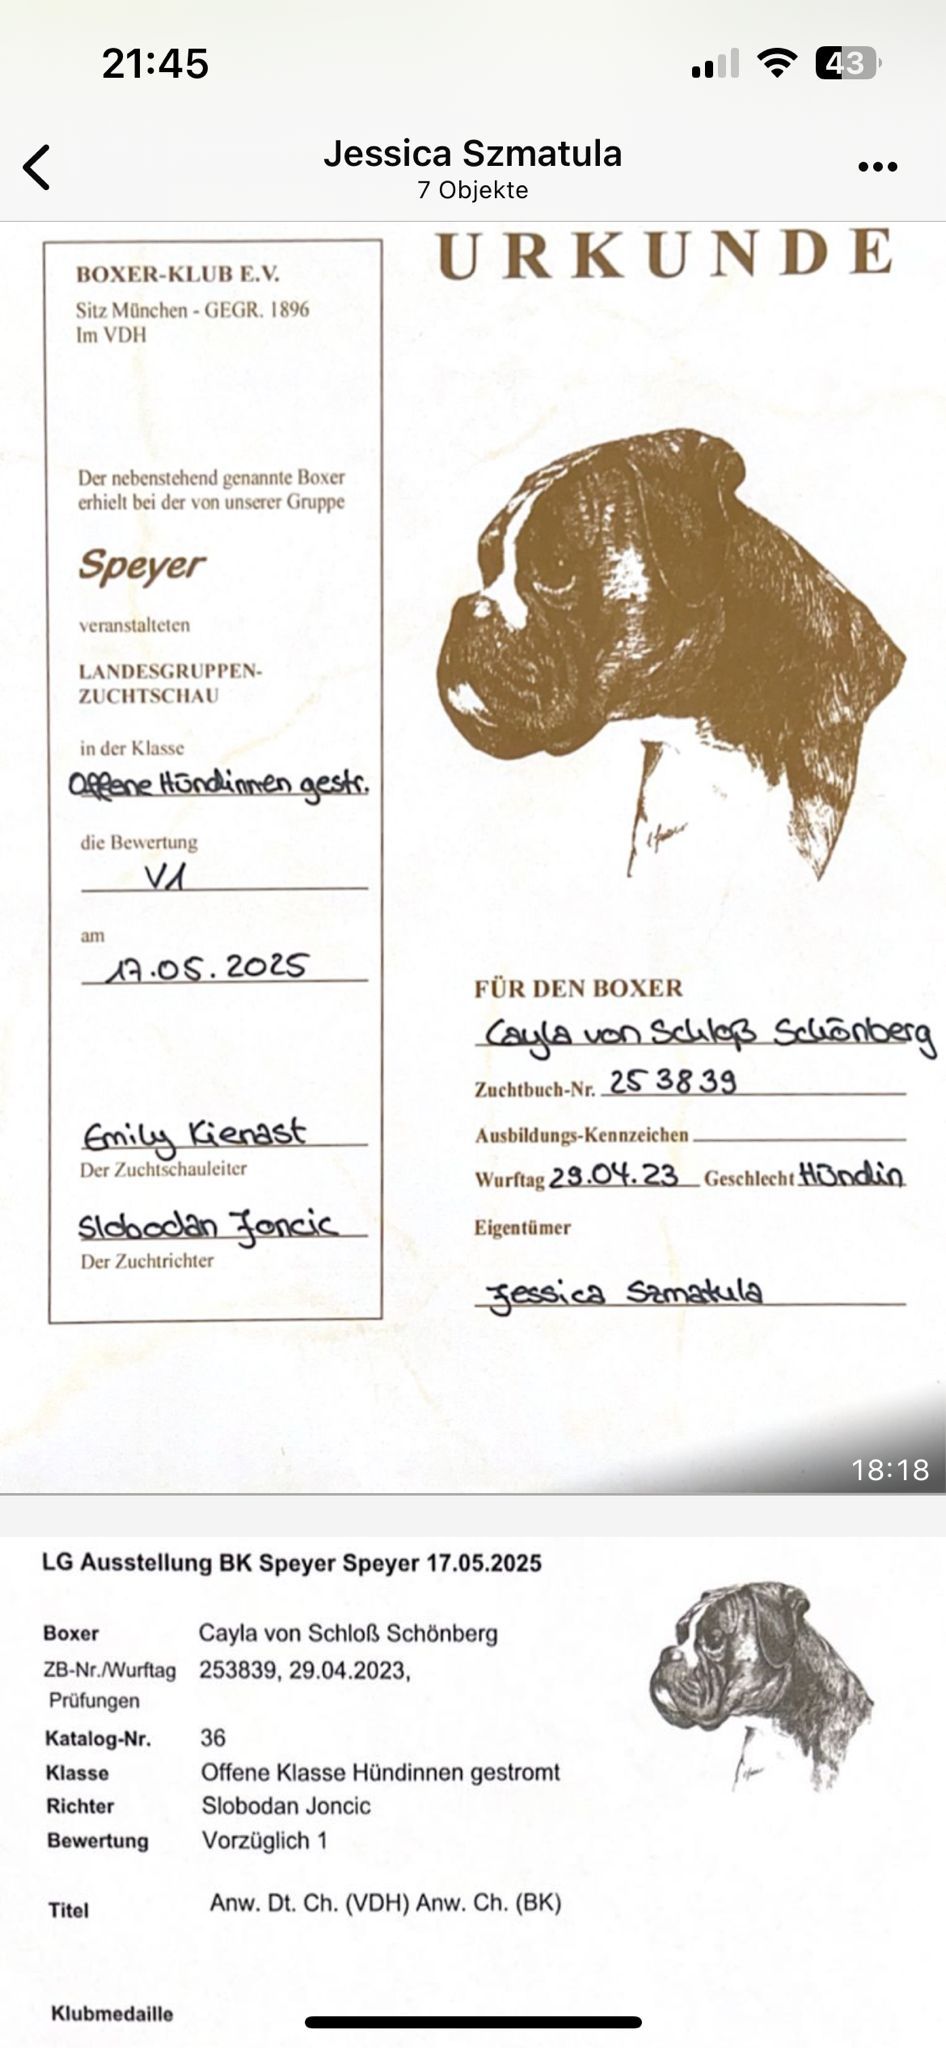 21:45
43
Jessica Szmatula
7 Objekte
URKUNDE
BOXER-KLUB E.V.
Sitz München - GEGR. 1896
Im VDH
Der nebenstehend genannte Boxer
erhielt bei der von unserer Gruppe
Speyer
veranstalteten
LANDESGRUPPEN-
ZUCHTSCHAU
in der Klasse
Offene Hündinnen gestr.
die Bewertung
V1
am
17.05.2025
Emily Kienast
Der Zuchtschauleiter
Slobodan Joncic
Der Zuchtrichter
FÜR DEN BOXER
Cayla von Schloß Schönberg
Zuchtbuch-Nr. 253839
Ausbildungs-Kennzeichen
Wurftag 29.04.23 Geschlecht Hündin
Eigentümer
Jessica Szmatula
18:18
LG Ausstellung BK Speyer Speyer 17.05.2025
Boxer Cayla von Schloß Schönberg
ZB-Nr./Wurftag 253839, 29.04.2023,
Prüfungen
Katalog-Nr. 36
Klasse Offene Klasse Hündinnen gestromt
Richter Slobodan Joncic
Bewertung Vorzüglich 1
Titel Anw. Dt. Ch. (VDH) Anw. Ch. (BK)
Klubmedaille